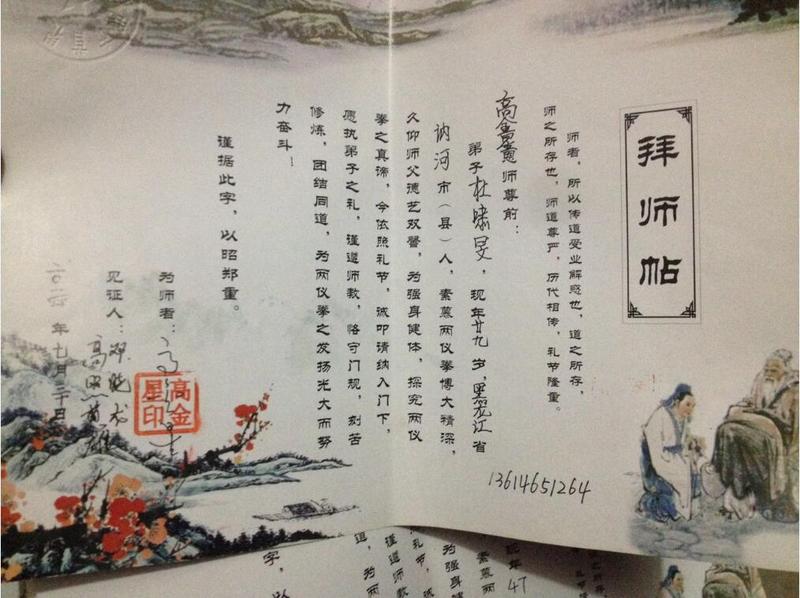 拜师帖
师者，所以传道受业解惑也，道之所存，
师之所存也，师道尊严，历代相传，礼节隆重。
高 师尊前：
弟子杜啸旻，现年廿九岁，黑龙江省
讷河市（县）人，素慕两仪拳博大精深，
久仰师父德艺双馨，为强身健体，探究两仪
拳之真谛，今依照礼节，诚叩请纳入门下，
愿执弟子之礼，谨遵师教，恪守门规，刻苦
修炼，团结同道，为两仪拳之发扬光大而努
力奋斗！
谨据此字，以昭郑重。
为师者：高
高金星印
见证人：邓
高
年七月二十日
13614651264
现年47
素慕两
为强身
礼节，诚
谨遵师教
道，为两
字，以